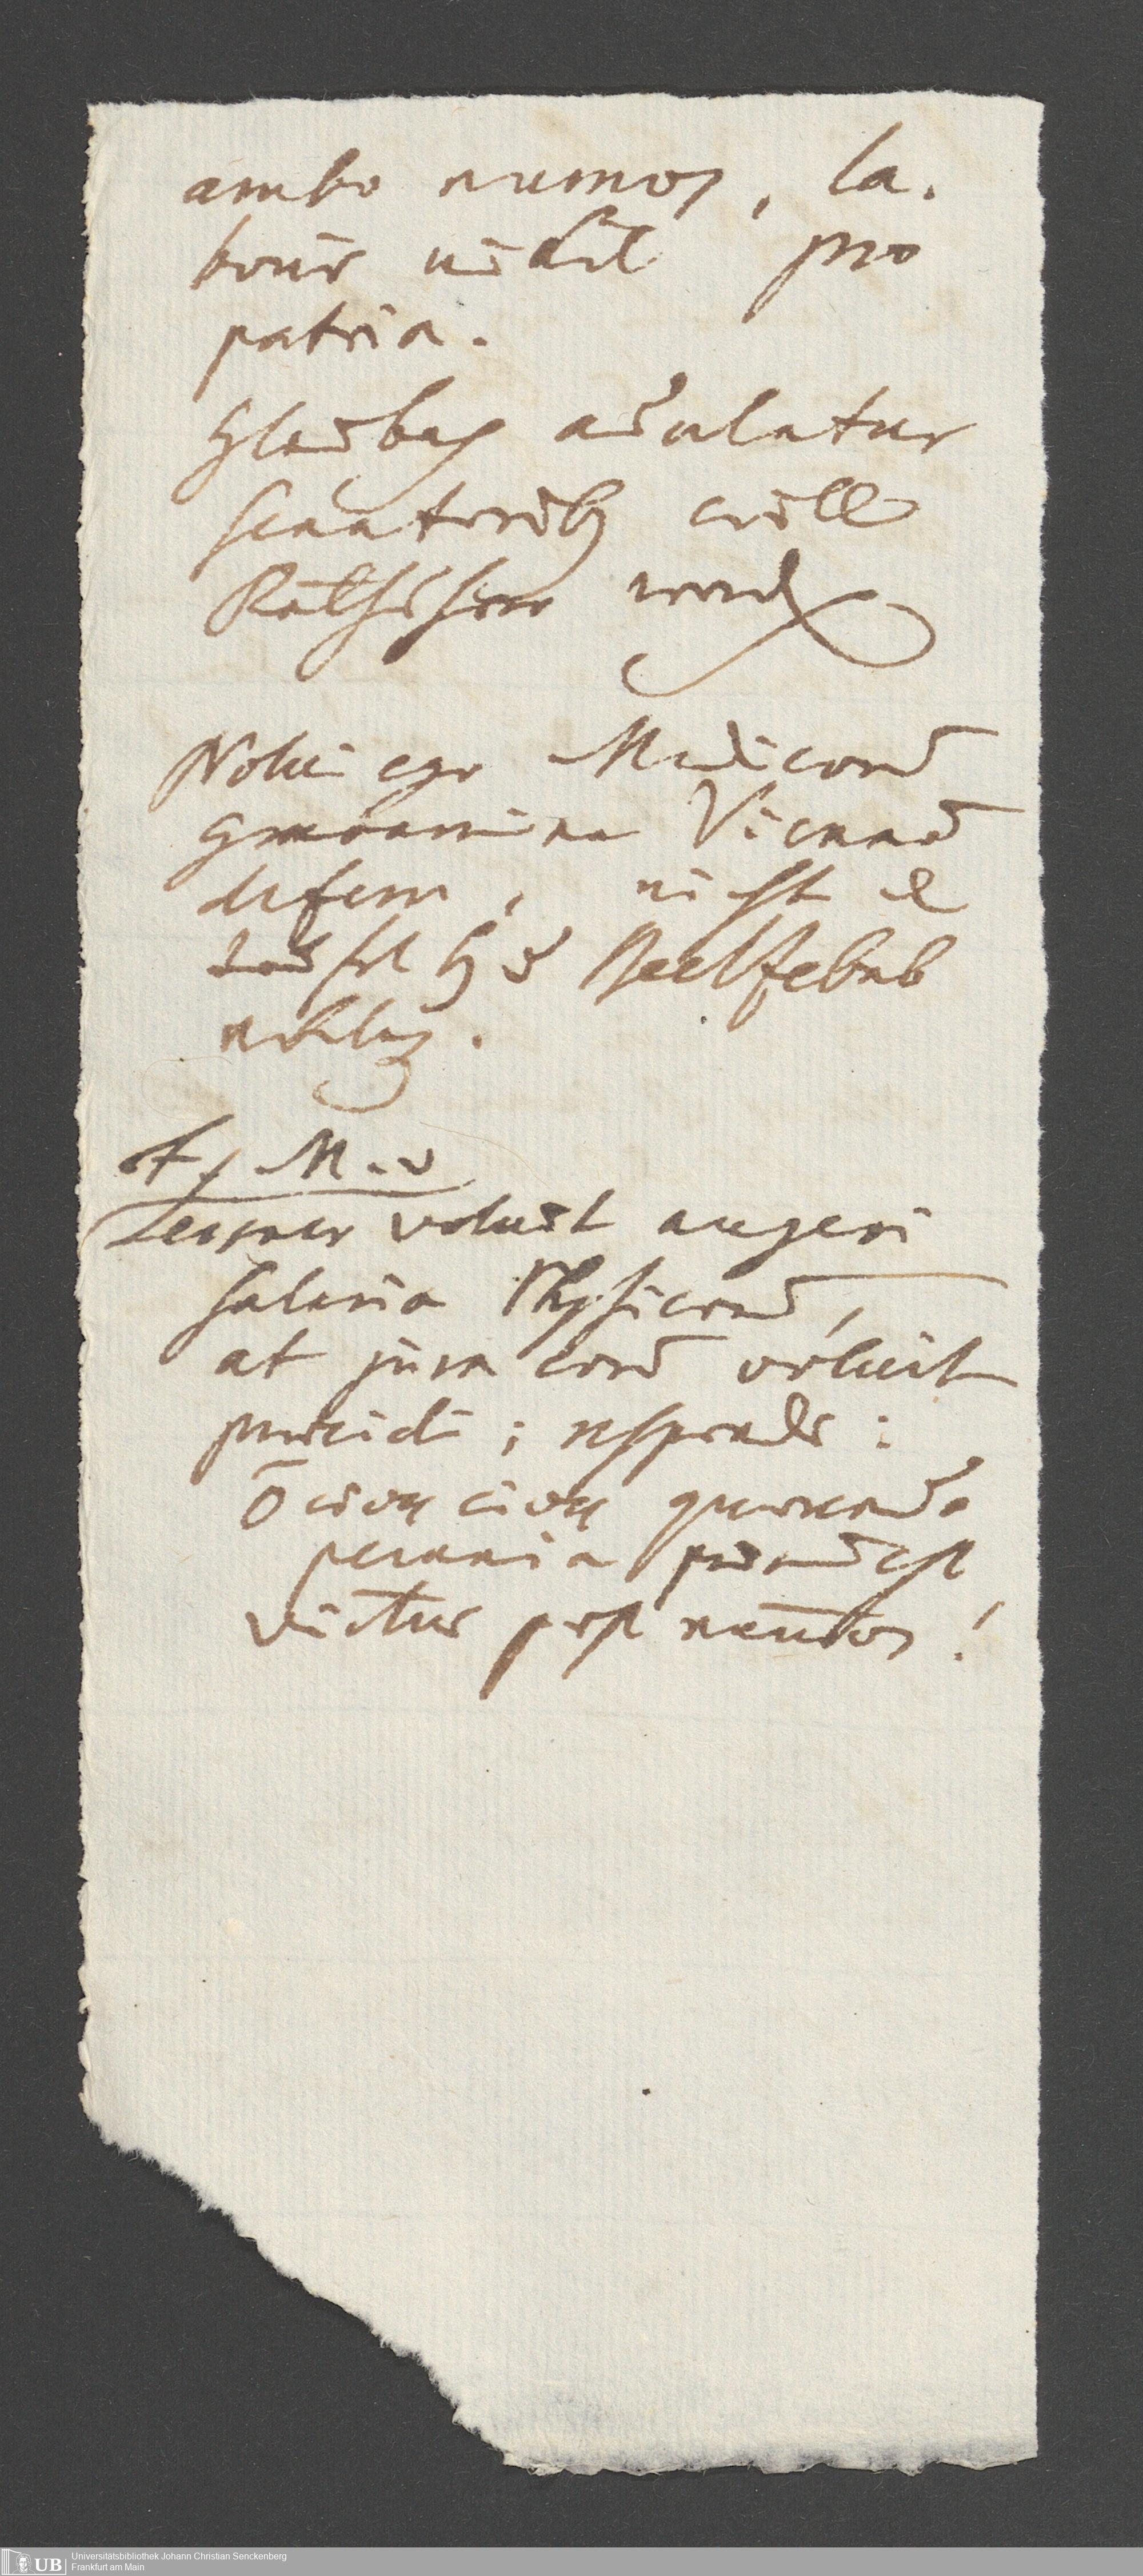 ambo numos, la.
boris nihil pro
patria.
Gladbach adulatur
senatorib9 will
Rathsherr werd
Nolui ego Medicorū
gravamina Viennā
deferre, nicht
Teufel Beelsebub
F. M.
voluit augeri
salaria Physicorū,
at jura eorū voluit
praecidi; respondi:
ō cives cives quaerenda
pecunia primū est
virtus post nummos!
Universitätsbibliothek Johann Christian Senckenberg
Frankfurt am Main
UB